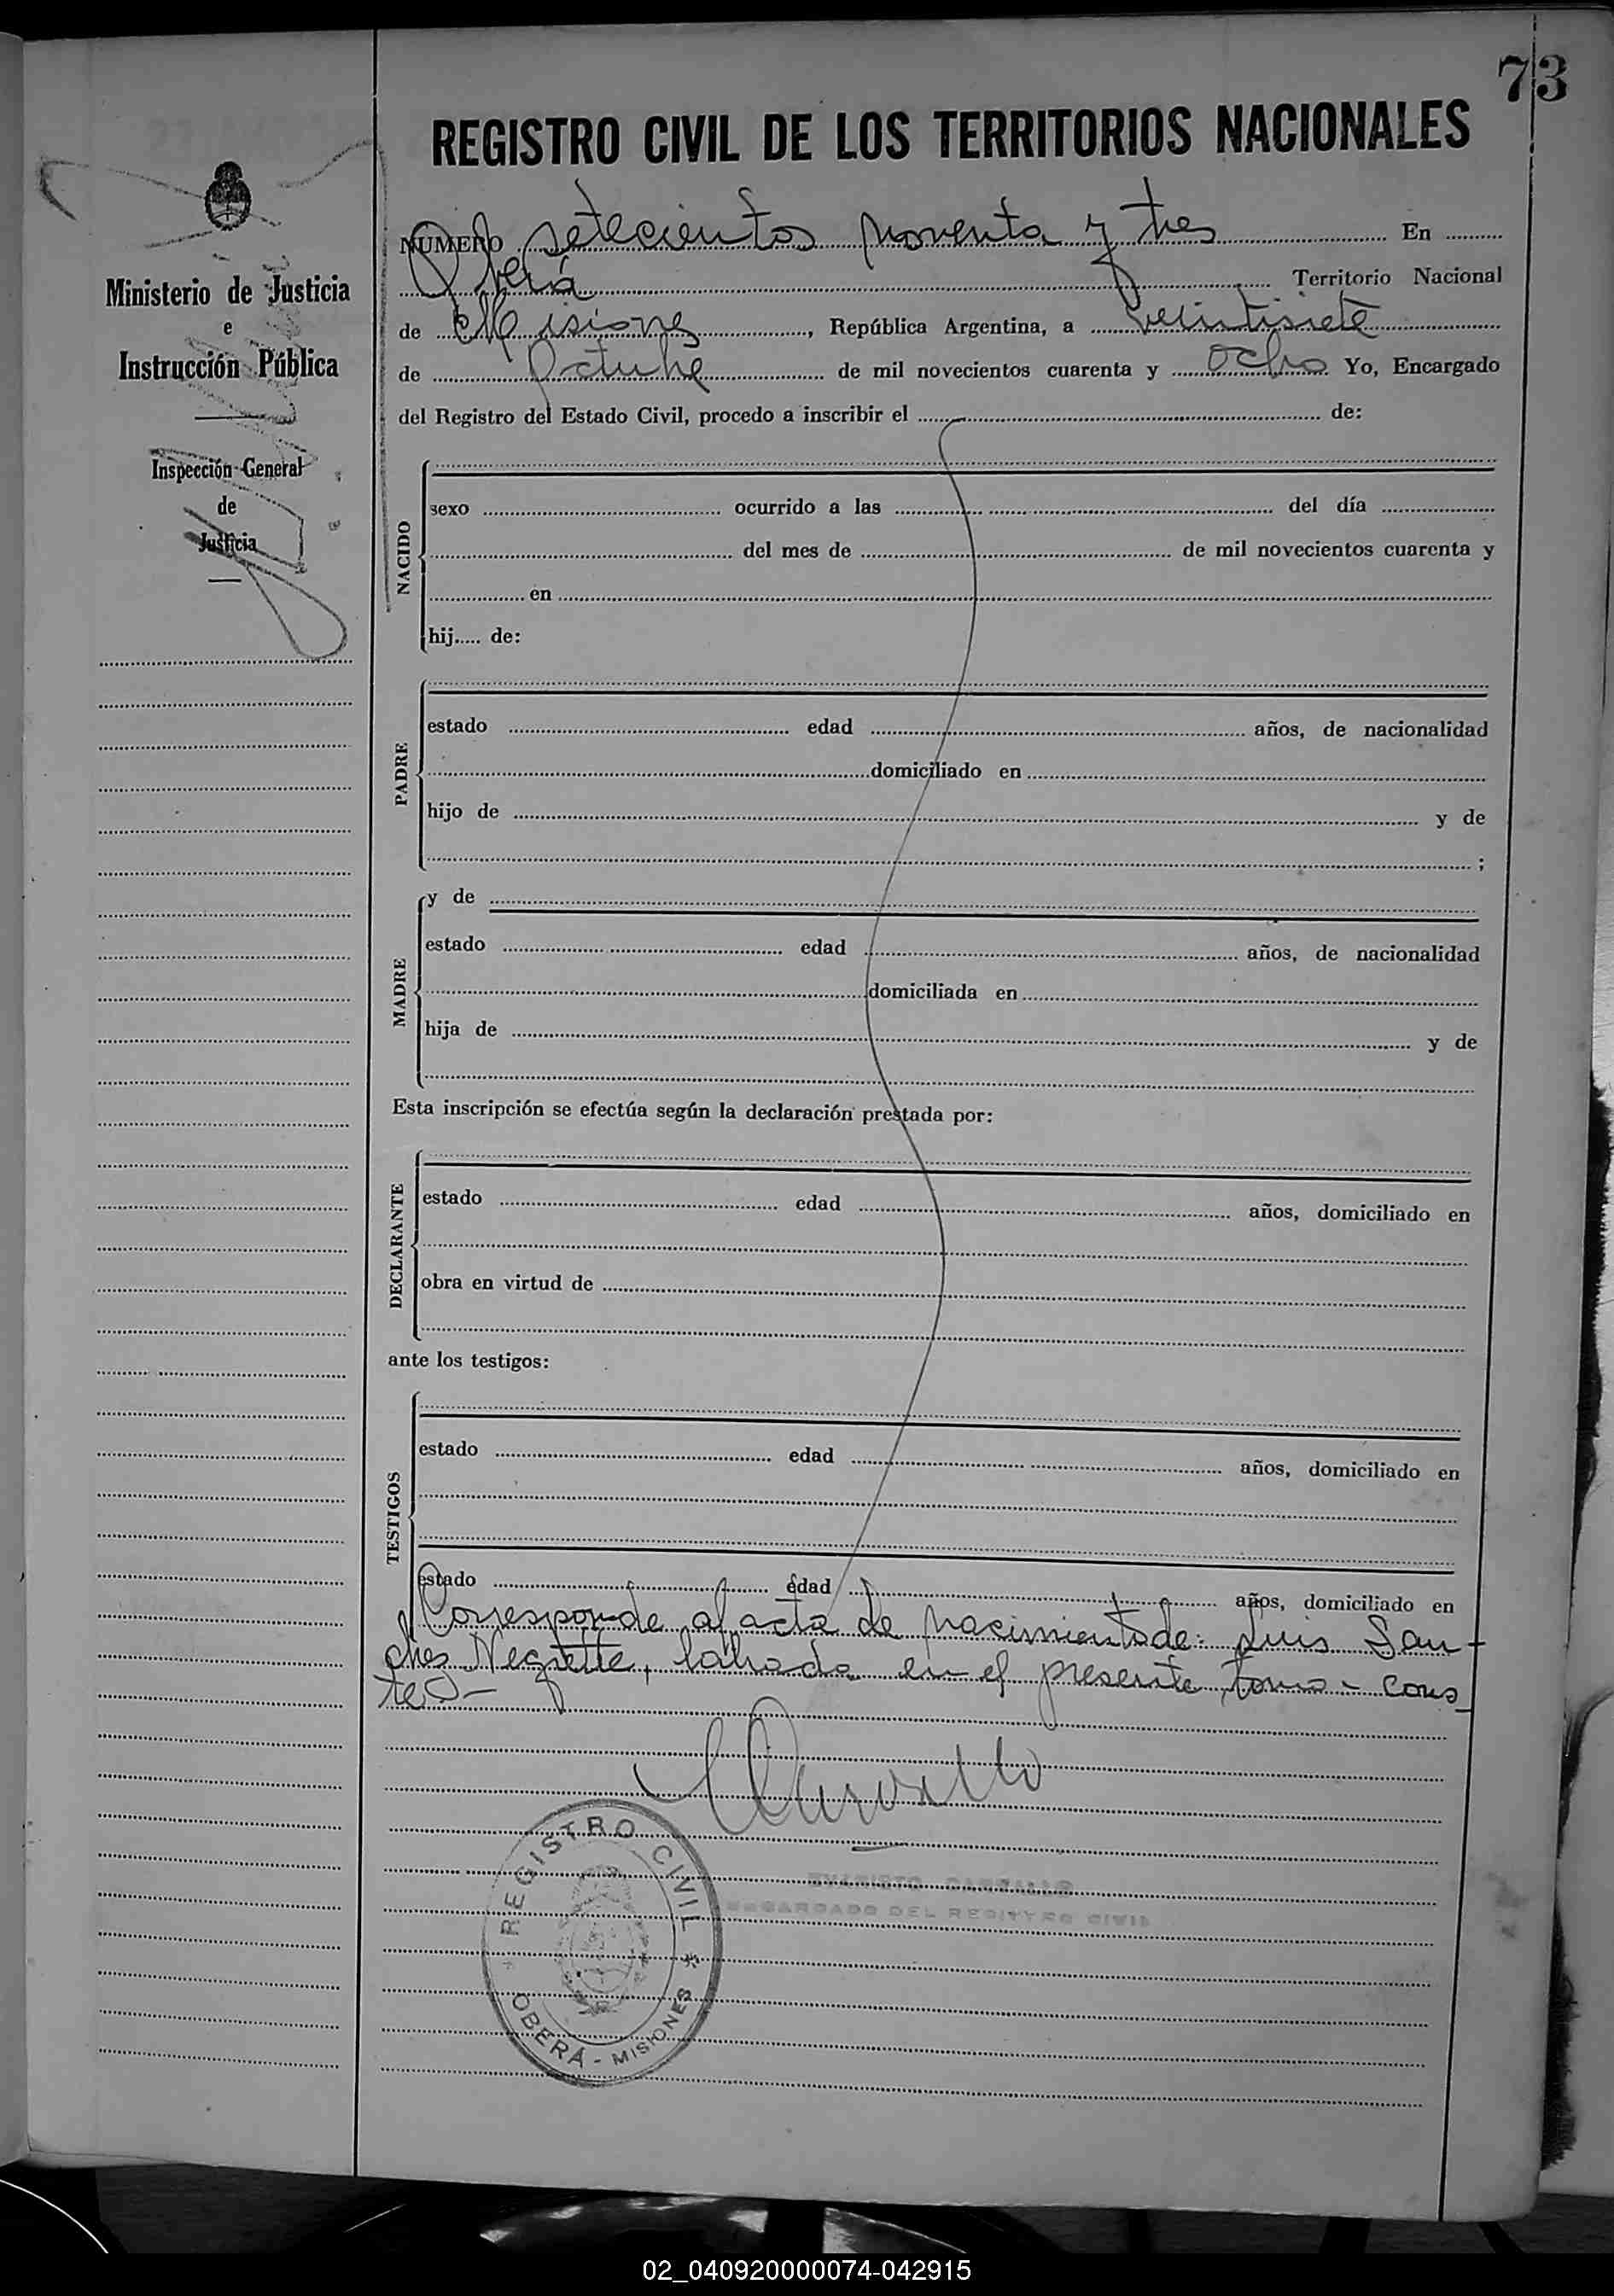 73
REGISTRO CIVIL DE LOS TERRITORIOS NACIONALES
Ministerio de Justicia
e
Instrucción Pública
Inspección General
de
Justicia
NUMERO setecientos noventa y tres En
Oberá Territorio Nacional
de Misiones, República Argentina, a veintisiete
de Octubre de mil novecientos cuarenta y ocho Yo, Encargado
del Registro del Estado Civil, procedo a inscribir el de:
NACIDO
sexo ocurrido a las del día
del mes de de mil novecientos cuarenta y
en
hij de:
PADRE
estado edad años, de nacionalidad
domiciliado en
hijo de y de
;
MADRE
y de
estado edad años, de nacionalidad
domiciliada en
hija de y de
Esta inscripción se efectúa según la declaración prestada por:
DECLARANTE
estado edad años, domiciliado en
obra en virtud de
ante los testigos:
TESTIGOS
estado edad años, domiciliado en
estado edad años, domiciliado en
Corresponde al acta de nacimiento de: Luis San-
ches Negrette, labrada en el presente tomo - cons
te -
REGISTRO CIVIL
OBERÁ - MISIONES
ENCARGADO DEL REGISTRO CIVIL
02_040920000074-042915